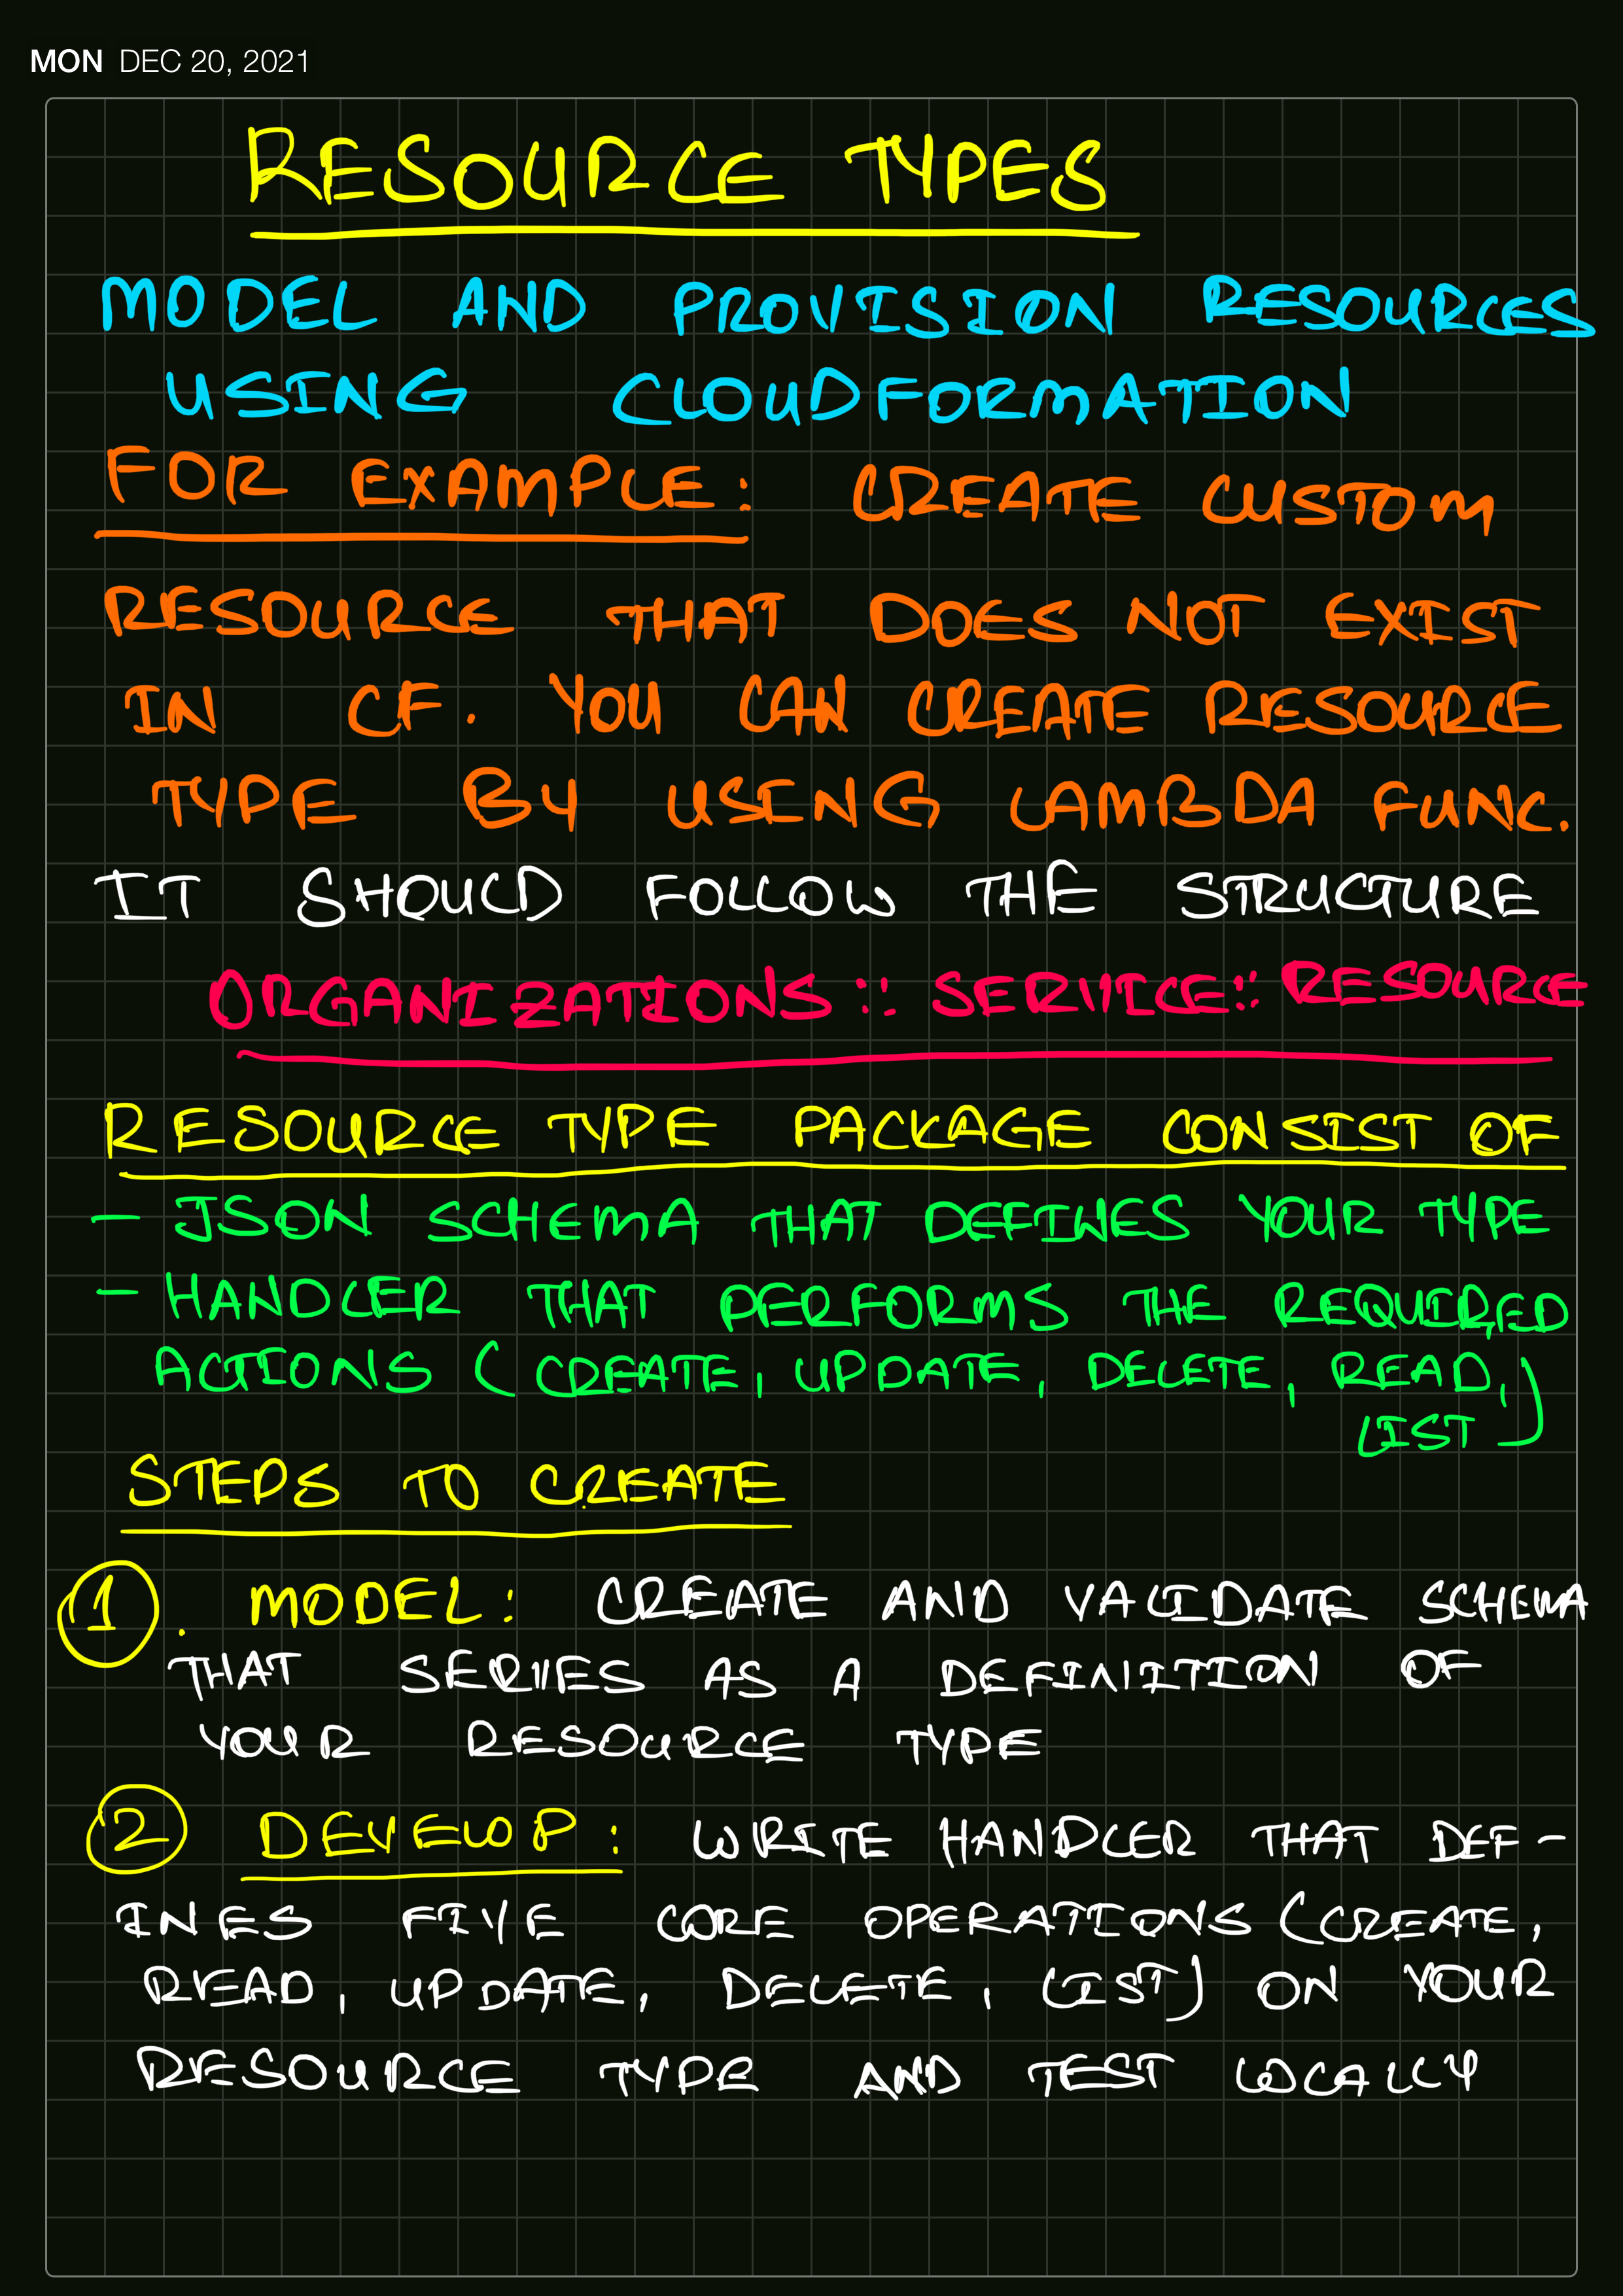 MON DEC 20, 2021
RESOURCE TYPES
MODEL AND PROVISION RESOURCES
USING CLOUDFORMATION
FOR EXAMPLE: CREATE CUSTOM
RESOURCE THAT DOES NOT EXIST
IN CF. YOU CAN CREATE RESOURCE
TYPE BY USING LAMBDA FUNC.
IT SHOULD FOLLOW THE STRUCTURE
ORGANIZATIONS :: SERVICE :: RESOURCE
RESOURCE TYPE PACKAGE CONSIST OF
- JSON SCHEMA THAT DEFINES YOUR TYPE
- HANDLER THAT PERFORMS THE REQUIRED
ACTIONS (CREATE, UPDATE, DELETE, READ,
LIST)
STEPS TO CREATE
1. MODEL: CREATE AND VALIDATE SCHEMA
THAT SERVES AS A DEFINITION OF
YOUR RESOURCE TYPE
2 DEVELOP: WRITE HANDLER THAT DEF-
INES FIVE CORE OPERATIONS (CREATE,
READ, UPDATE, DELETE, LIST) ON YOUR
RESOURCE TYPE AND TEST LOCALLY